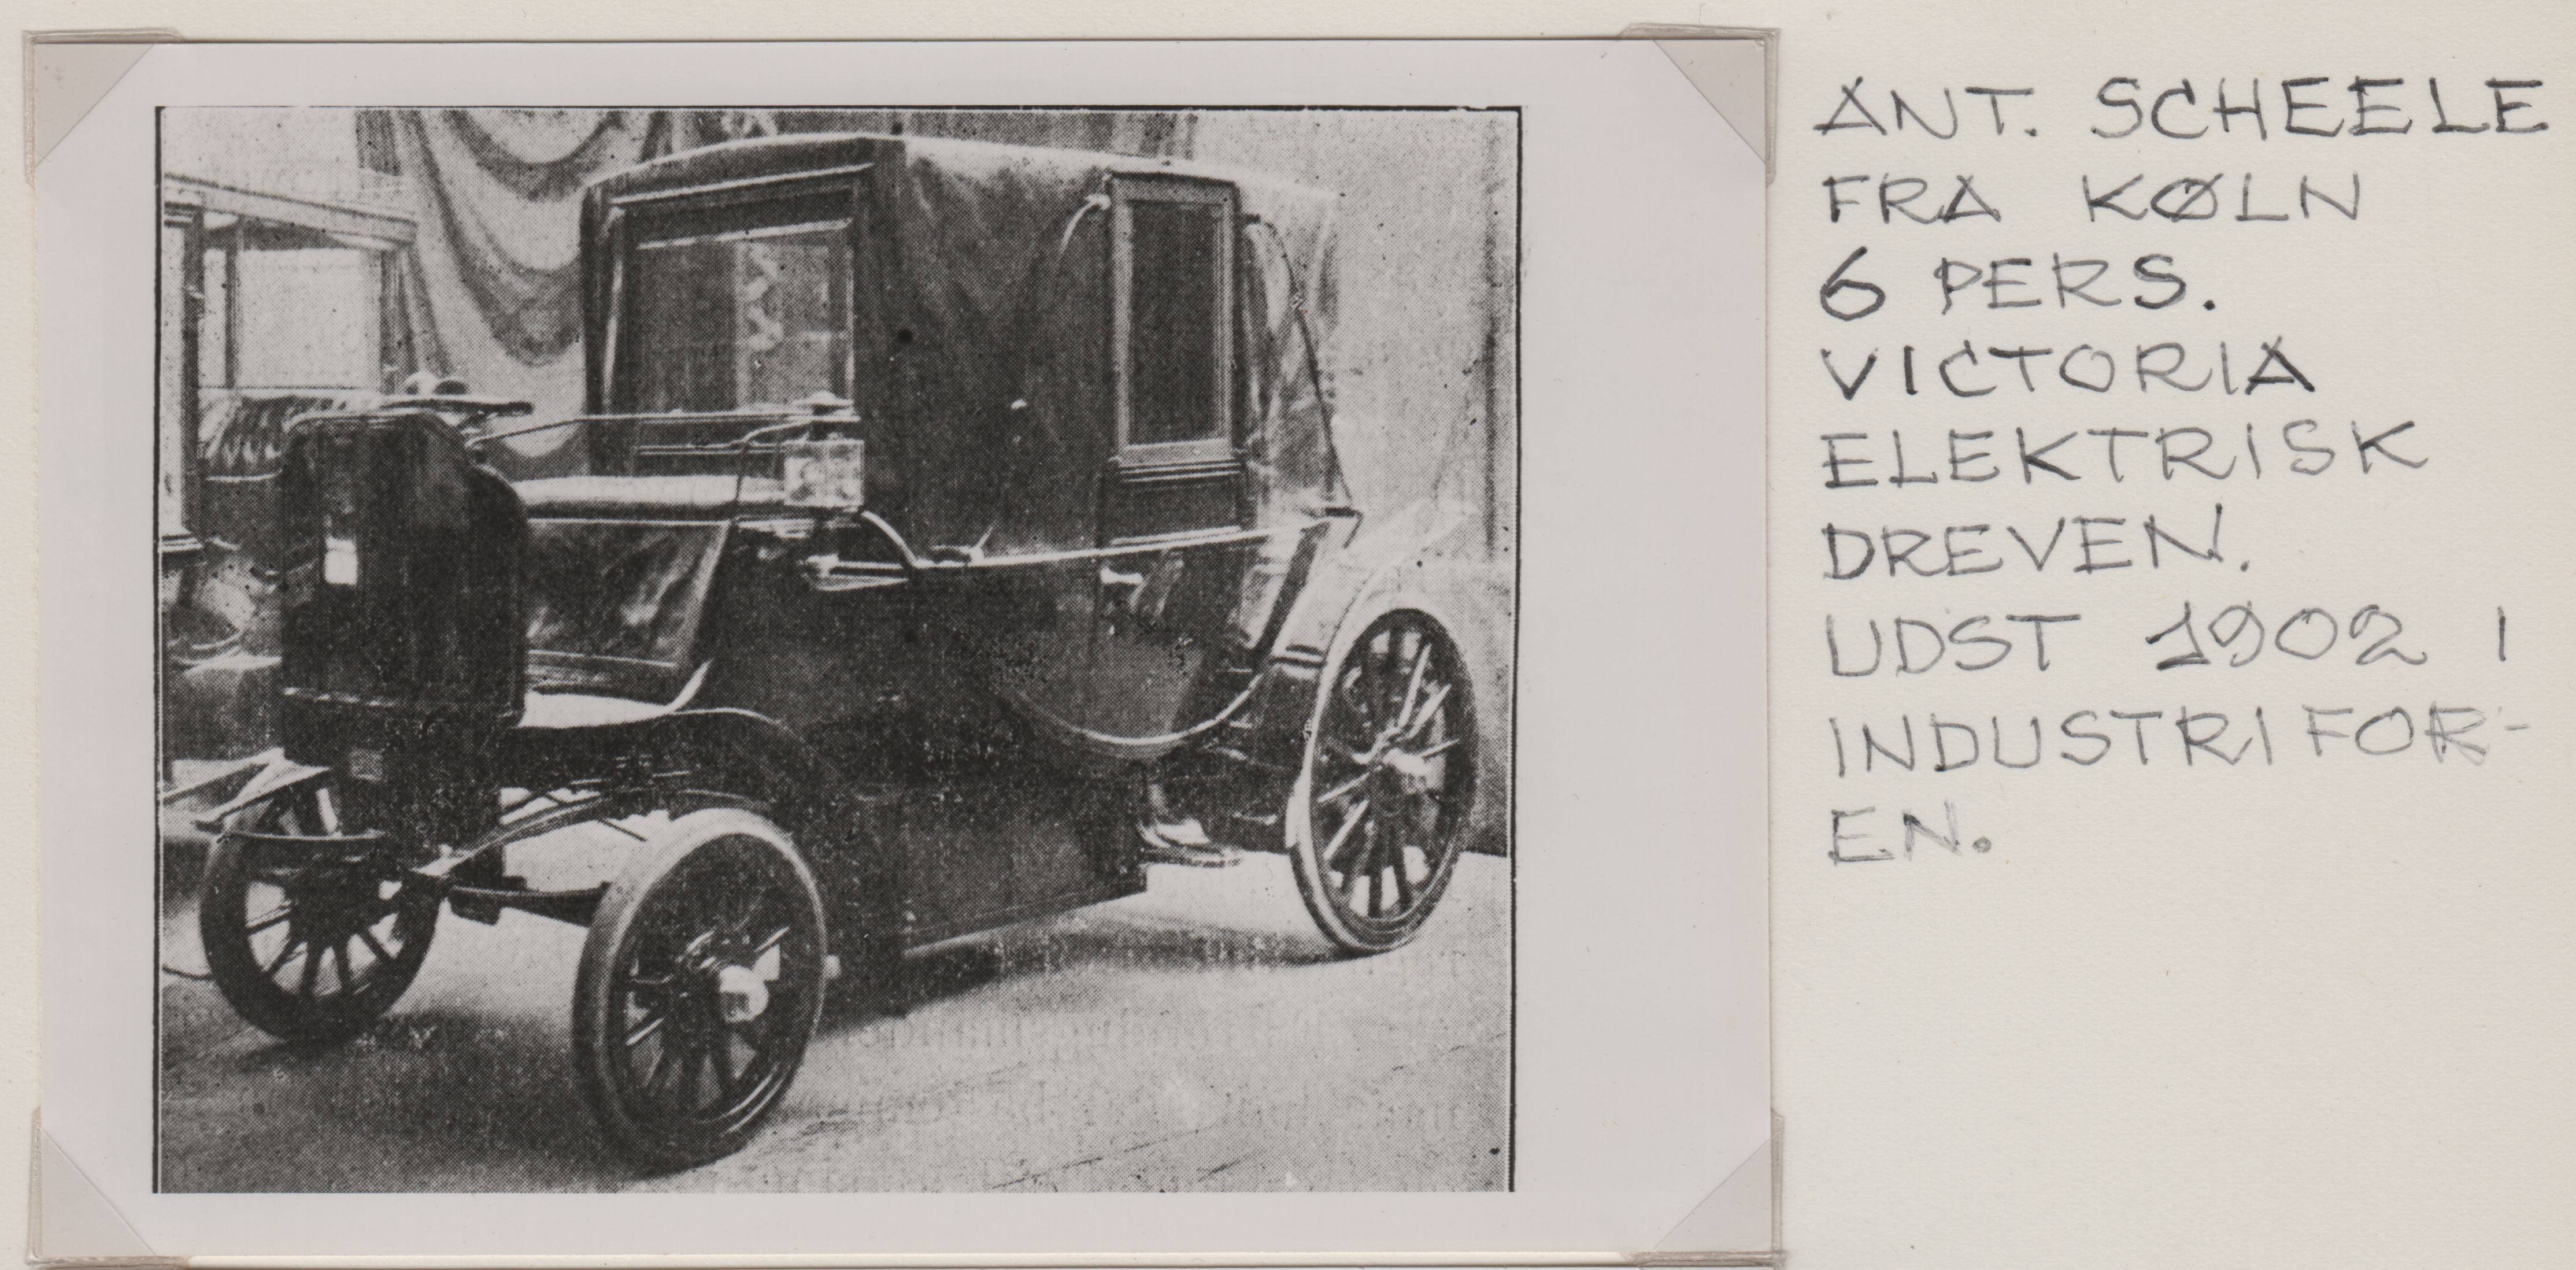 ANT. SCHEELE
FRA KØLN
6 PERS.
VICTORIA
ELEKTRISK
DREVEN.
UDST 1902 I
INDUSTRIFOR-
EN.